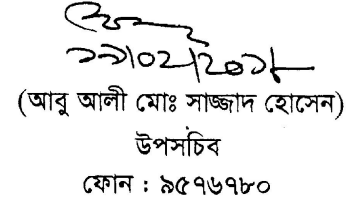 ১৯/০২/২০১৮
(আবু আলী মোঃ সাজ্জাদ হোসেন)
উপসচিব
ফোন : ৯৫৭৬৭৮০